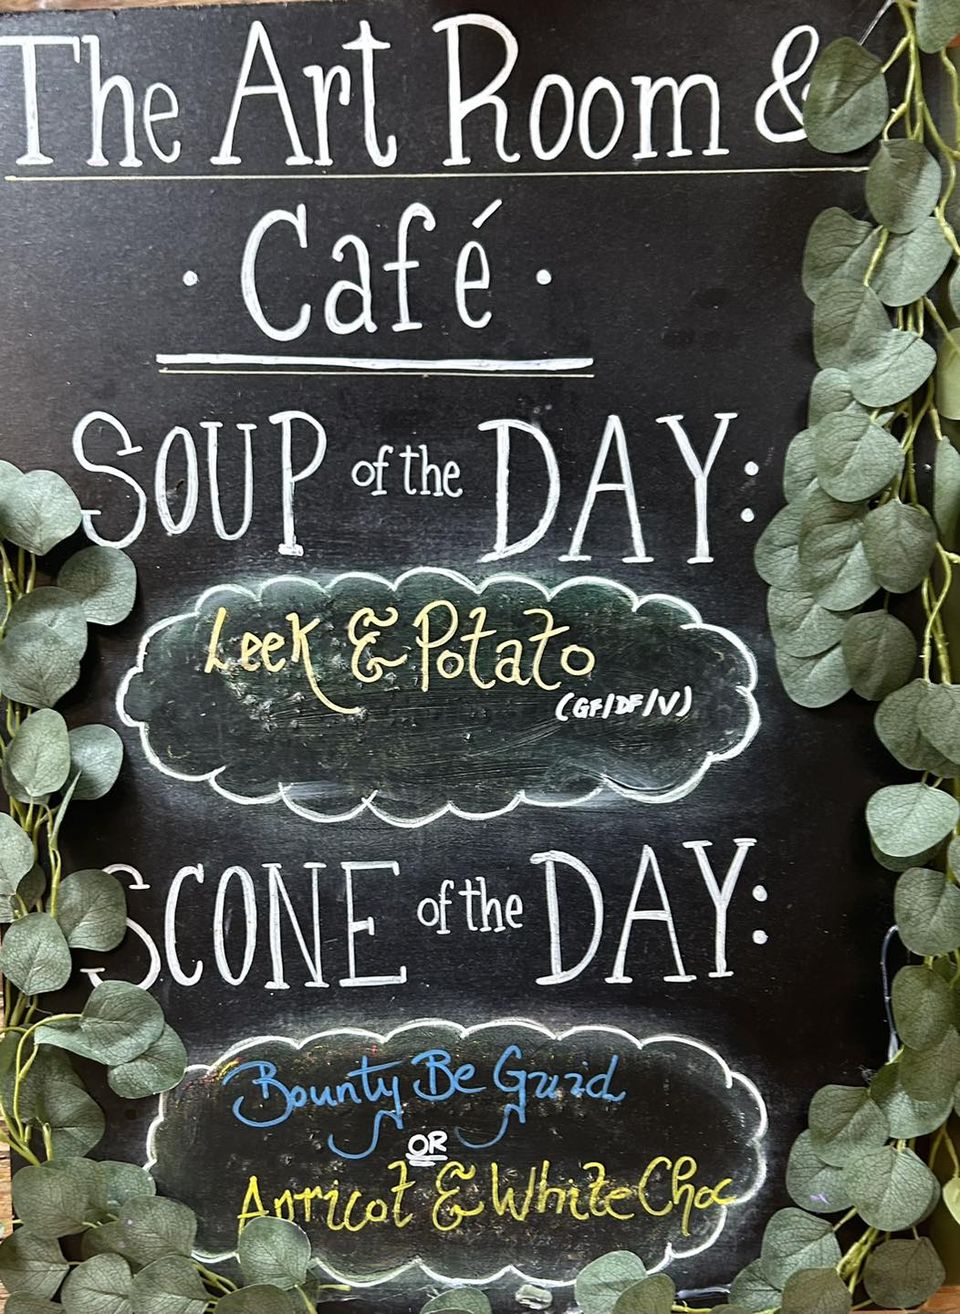 The Art Room &
· Café ·
SOUP of the DAY:
Leek & Potato
(GF/DF/V)
SCONE of the DAY:
Bounty Be Guid
OR
Apricot & White Choc